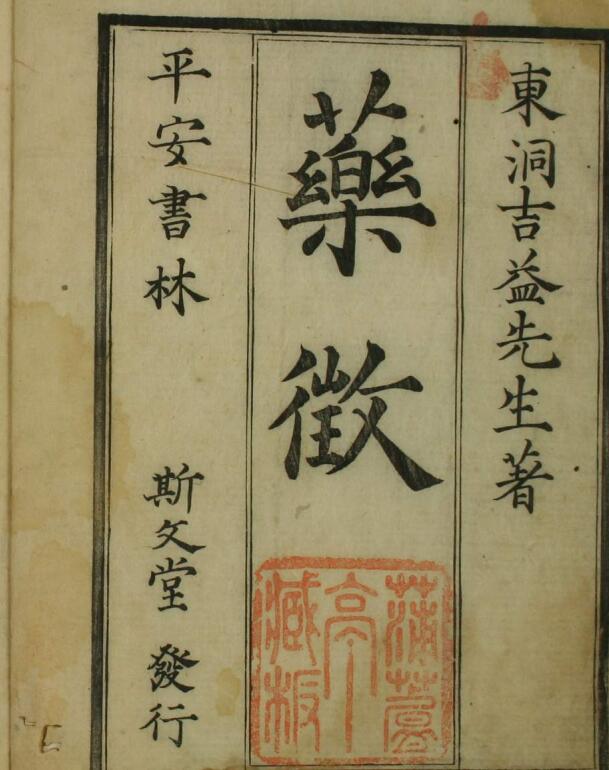 東洞吉益先生著
藥徵
平安書林 斯文堂 發行